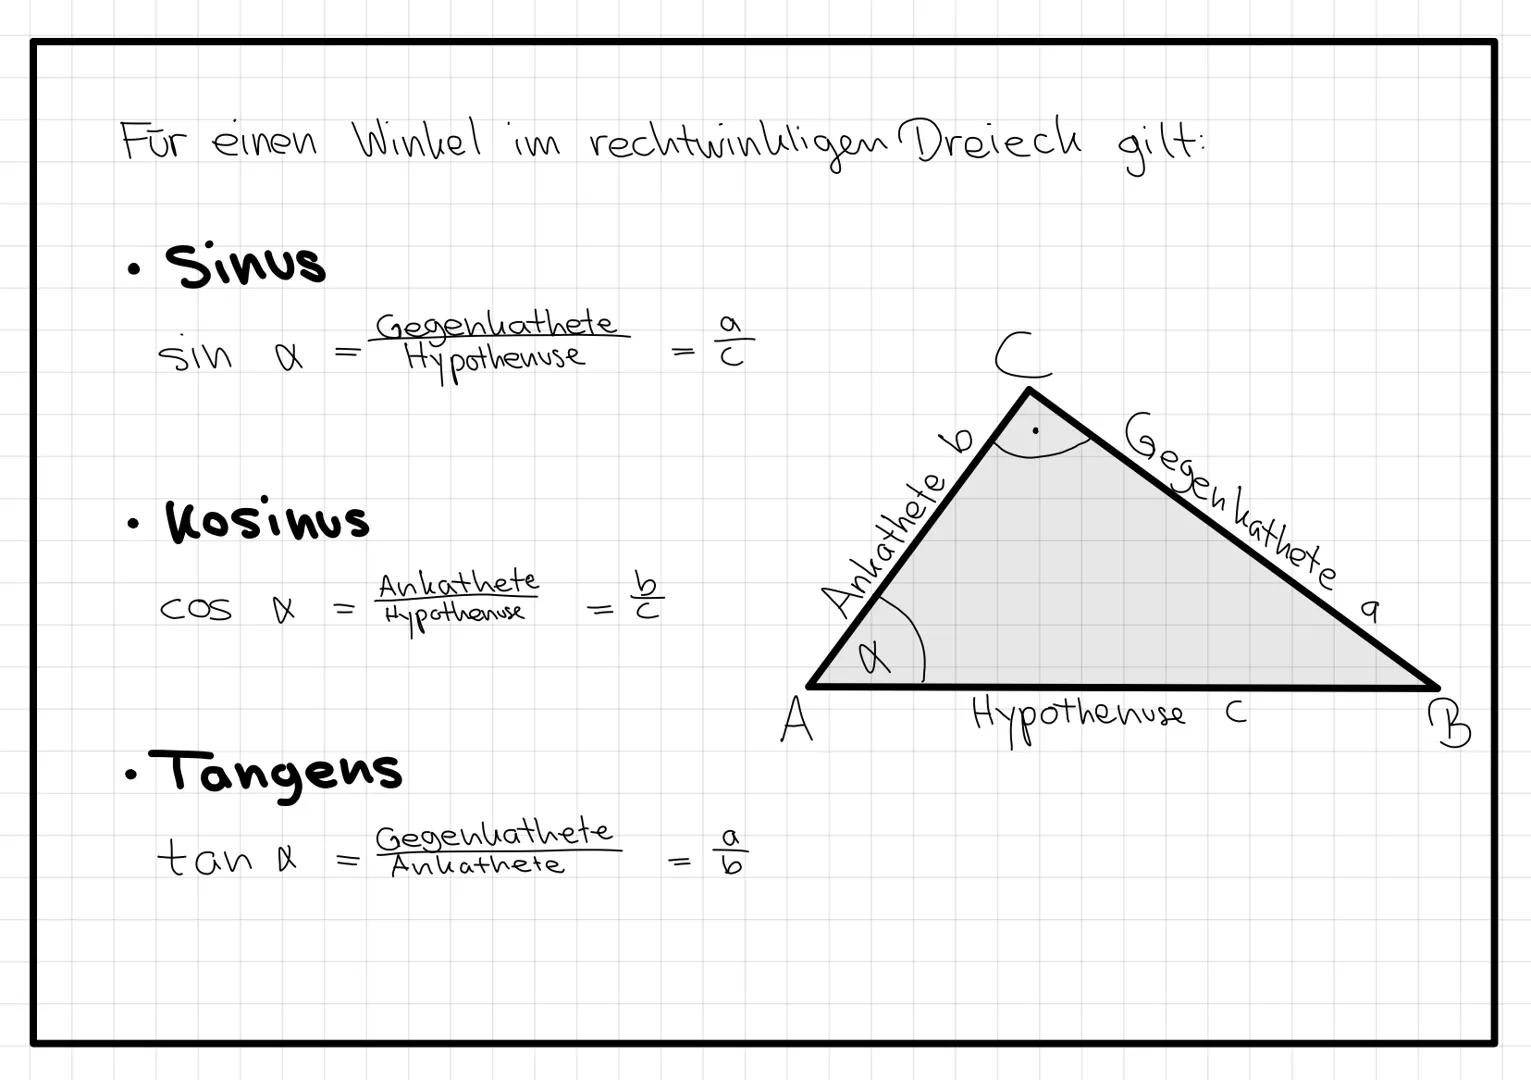 Für einen Winkel im rechtwinkligen Dreieck gilt:
• Sinus
sin α = Gegenkathete / Hypothenuse = a / c
• Kosinus
cos α = Ankathete / Hypothenuse = b / c
• Tangens
tan α = Gegenkathete / Ankathete = a / b
C
Ankathete b
Gegenkathete a
α
A
Hypothenuse c
B